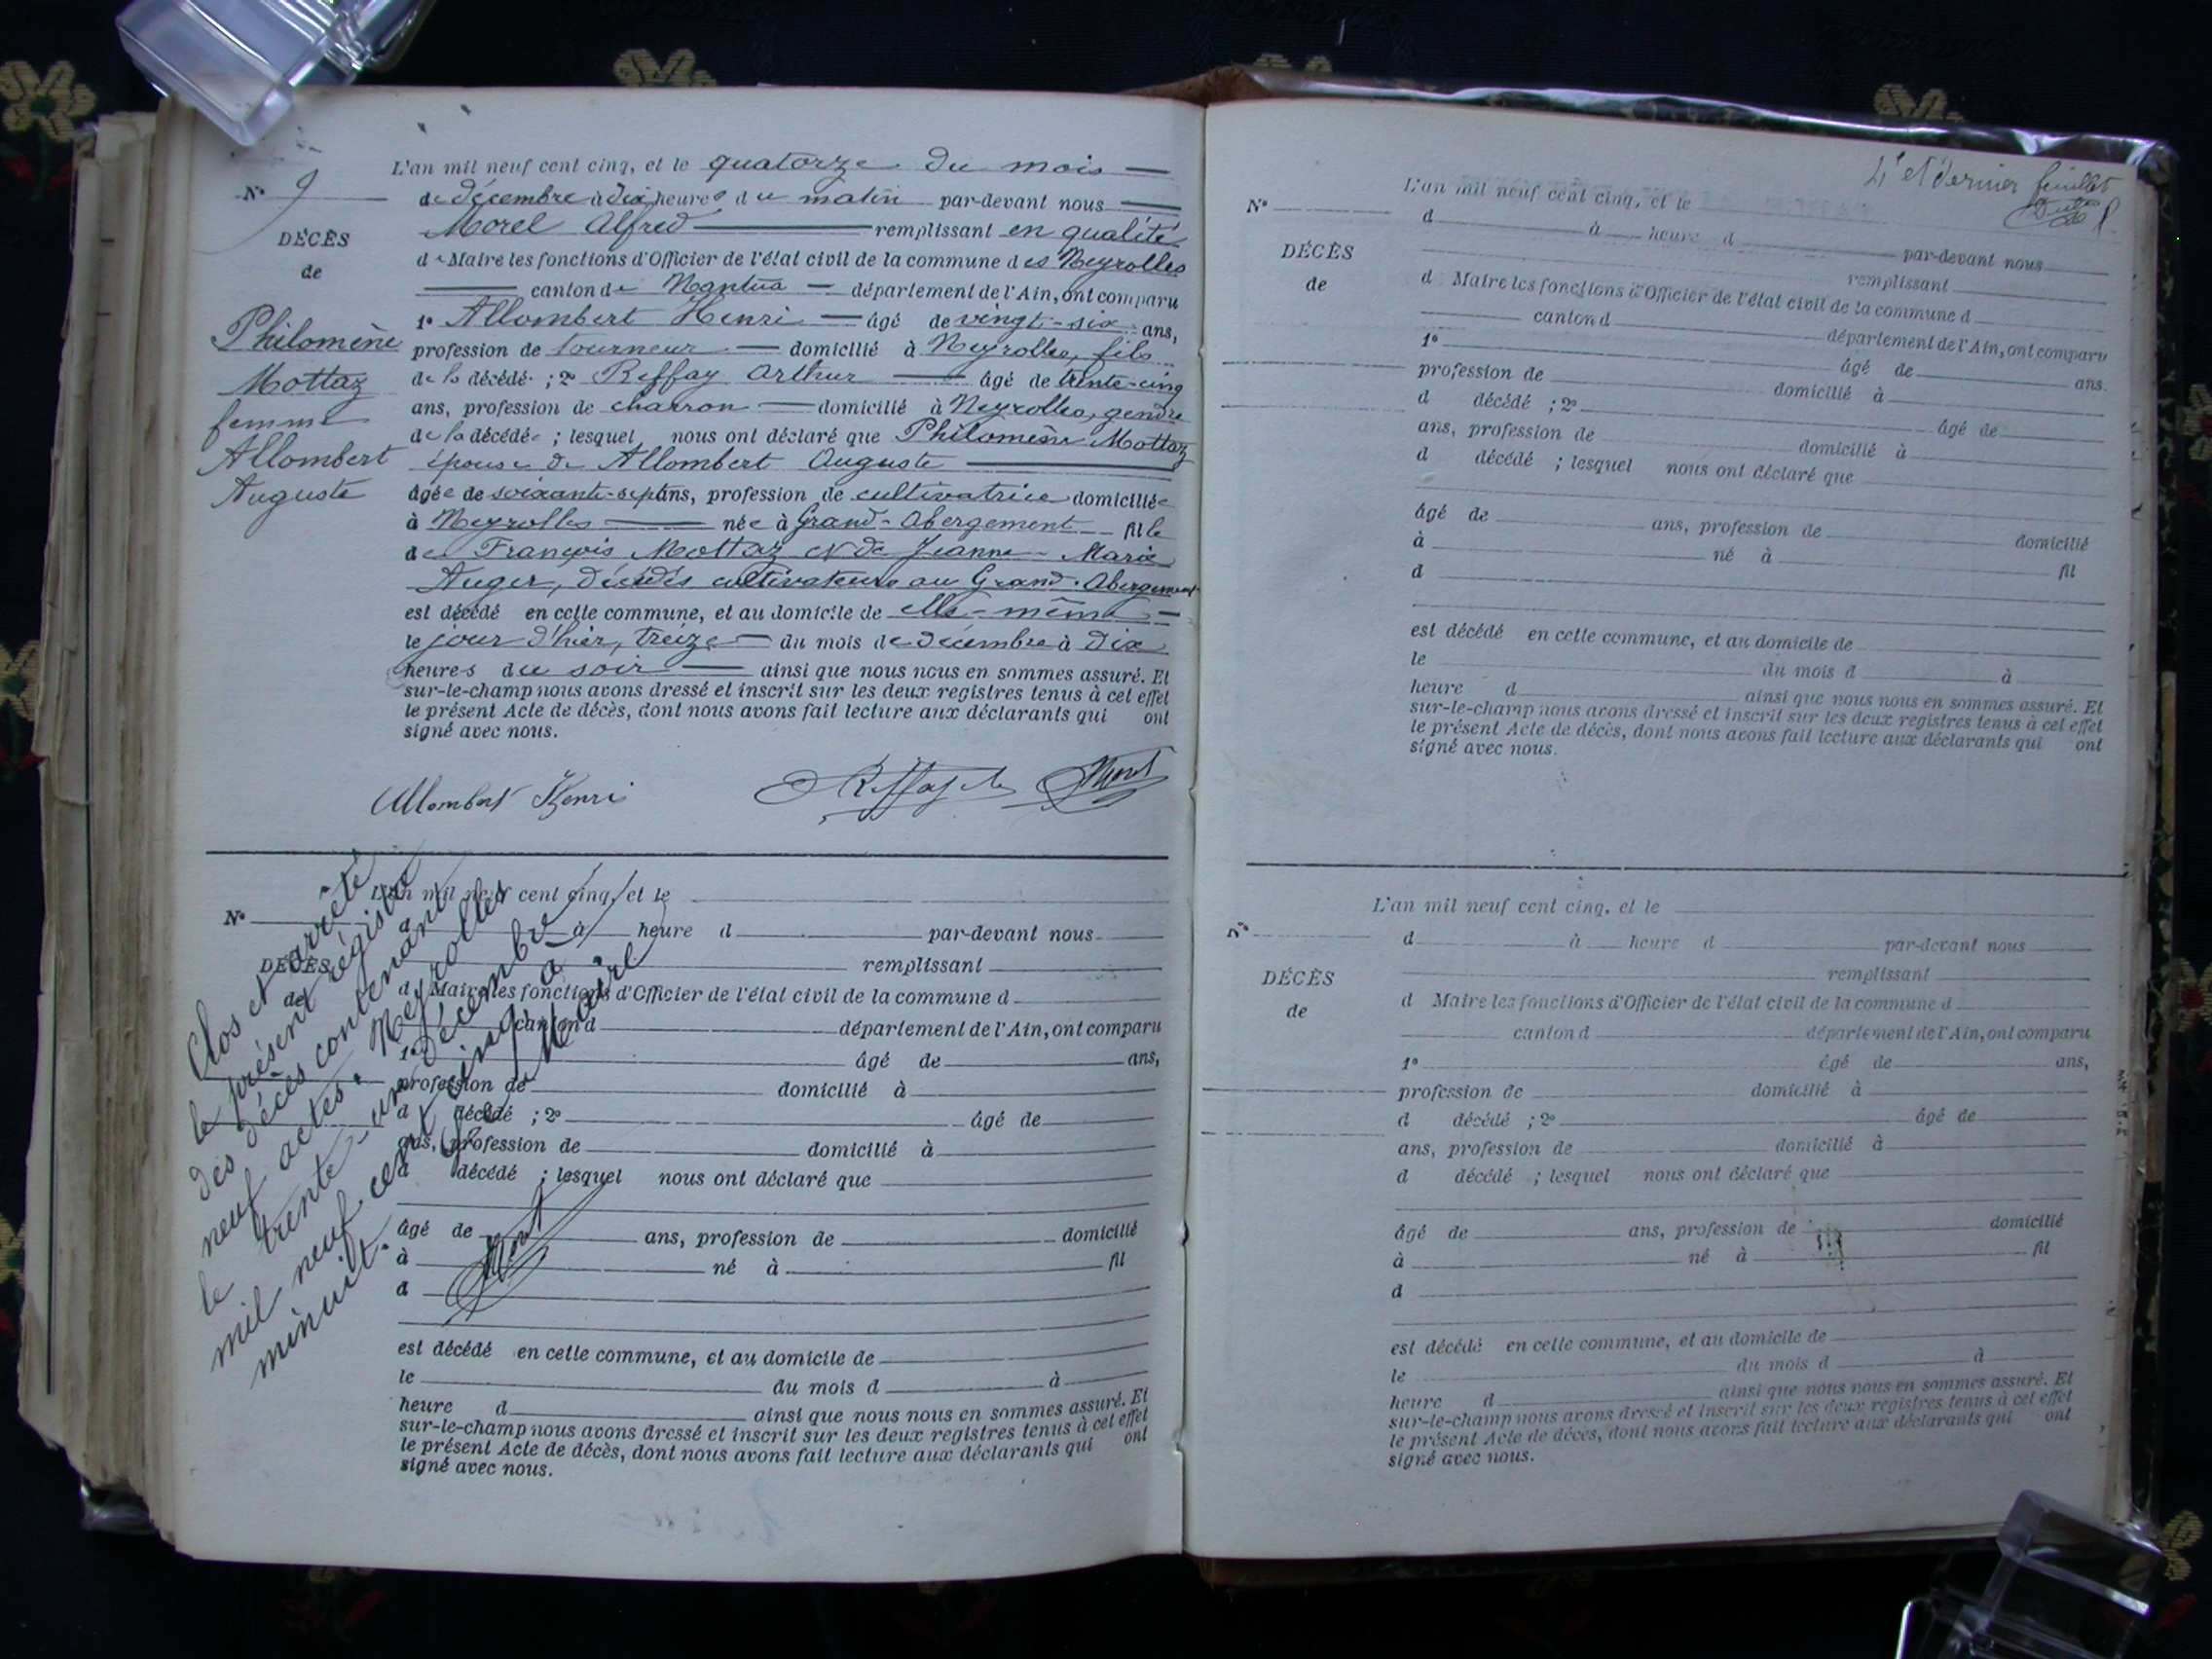 L'an mil neuf cent cinq, et le quatorze du mois
N° 9
de décembre à dix heures du matin par-devant nous
Morel Alfred remplissant en qualité
DÉCÈS
de
de Maire les fonctions d'Officier de l'état civil de la commune des Neyrolles
canton de Nantua département de l'Ain, ont comparu
1° Allombert Henri âgé de vingt-six ans,
Philomène
profession de tourneur domicilié à Neyrolles, fils
Mottaz
de la décédé ; 2° Reffay Arthur âgé de trente-cinq
femme
ans, profession de charron domicilié à Neyrolles, gendre
de la décédée ; lesquel nous ont déclaré que Philomène Mottaz
Allombert
épouse de Allombert Auguste
Auguste
âgée de soixante-sept ans, profession de cultivatrice domiciliée
à Neyrolles née à Grand-Abergement fille
de François Mottaz et de Jeanne-Marie
Auger, décédés cultivateurs au Grand-Abergement
est décédé en cette commune, et au domicile de elle-même
le jour d'hier, treize du mois de décembre à dix
heures du soir ainsi que nous nous en sommes assuré. Et
sur-le-champ nous avons dressé et inscrit sur les deux registres tenus à cet effet
le présent Acte de décès, dont nous avons fait lecture aux déclarants qui ont
signé avec nous.
Allombert Henri
Morel
L'an mil neuf cent cinq, et le
N°
d à heure d par-devant nous
remplissant
DÉCÈS
de
d Maire les fonctions d'Officier de l'état civil de la commune d
canton d département de l'Ain, ont comparu
1° âgé de ans,
profession de domicilié à
d décédé ; 2° âgé de
ans, profession de domicilié à
d décédé ; lesquel nous ont déclaré que
âgé de ans, profession de domicilié
à né à fil
d
est décédé en cette commune, et au domicile de
le du mois d à
heure d ainsi que nous nous en sommes assuré. Et
sur-le-champ nous avons dressé et inscrit sur les deux registres tenus à cet effet
le présent Acte de décès, dont nous avons fait lecture aux déclarants qui ont
signé avec nous.
Clos et arrêté
le présent régistre
des décès contenant
neuf actes. Neyrolles
le trente-un décembre
mil neuf cent cinq, à
minuit. Le Maire
Morel
4e et dernier feuillet
L'an mil neuf cent cinq, et le
N°
d à heure d par-devant nous
DÉCÈS
remplissant
de
d Maire les fonctions d'Officier de l'état civil de la commune d
canton d département de l'Ain, ont comparu
1° âgé de ans.
profession de domicilié à
d décédé ; 2° âgé de
ans, profession de domicilié à
d décédé ; lesquel nous ont déclaré que
âgé de ans, profession de domicilié
à né à fil
d
est décédé en cette commune, et au domicile de
le du mois d à
heure d ainsi que nous nous en sommes assuré. Et
sur-le-champ nous avons dressé et inscrit sur les deux registres tenus à cet effet
le présent Acte de décès, dont nous avons fait lecture aux déclarants qui ont
signé avec nous.
L'an mil neuf cent cinq, et le
N°
d à heure d par-devant nous
remplissant
DÉCÈS
de
d Maire les fonctions d'Officier de l'état civil de la commune d
canton d département de l'Ain, ont comparu
1° âgé de ans,
profession de domicilié à
d décédé ; 2° âgé de
ans, profession de domicilié à
d décédé ; lesquel nous ont déclaré que
âgé de ans, profession de domicilié
à né à fil
d
est décédé en cette commune, et au domicile de
le du mois d à
heure d ainsi que nous nous en sommes assuré. Et
sur-le-champ nous avons dressé et inscrit sur les deux registres tenus à cet effet
le présent Acte de décès, dont nous avons fait lecture aux déclarants qui ont
signé avec nous.